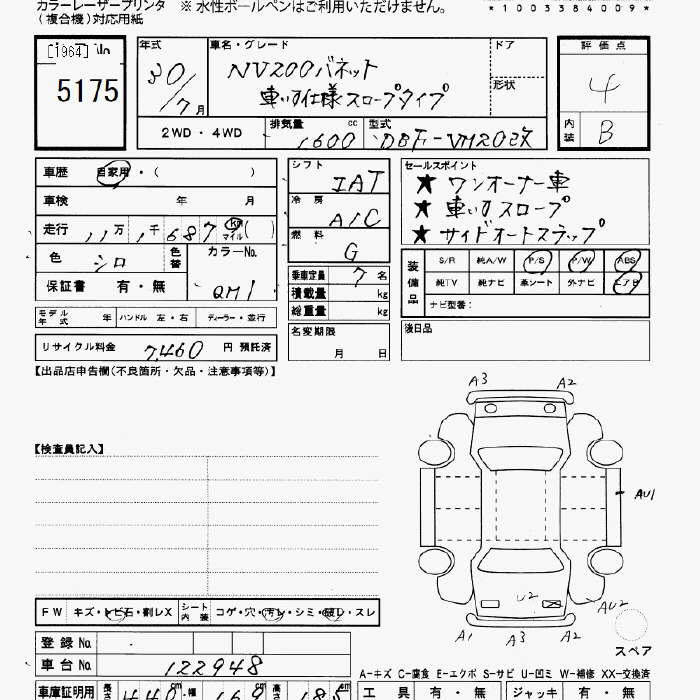 カラーレーザープリンタ ※ 水性ボールペンはご利用いただけません。
(複合機)対応用紙
*1003384009*
[1964]
5175
年式
30/7月
車名・グレード
NV200バネット
車いす仕様スロープタイプ
ドア
形状
評価点
4
内装 B
2WD・4WD
排気量 1600 cc
型式 DBF-VM20改
車歴 自家用・( )
車検 年 月
走行 11万 1千 687 km マイル ( )
色 シロ
色替
カラーNo. QM1
保証書 有・無
シフト IAT
冷房 A/C
燃料 G
乗車定員 7 名
積載量 kg
総重量 kg
セールスポイント
★ ワンオーナー車
★ 車いすスロープ
★ サイドオートステップ
装備品
S/R 純A/W P/S P/W ABS
純TV 純ナビ 革シート 外ナビ エアB
ナビ型番:
モデル年式 年 ハンドル 左・右 ディーラー・並行
名変期限 月 日
後日品
リサイクル料金 7,460 円 預託済
【出品店申告欄(不良箇所・欠品・注意事項等)】
A3 A2
【検査員記入】
AU1
U2
AU2
A1 A3 A2
スペア
FW キズ・トビ石・割レX シート内装 コゲ・穴・汚レ・シミ・破レ・スレ
登録No.
車台No. 122948
A-キズ C-腐食 E-エクボ S-サビ U-凹ミ W-補修 XX-交換済
車庫証明用 長さ 440 cm 幅 169 cm 高さ 185 cm
工具 有・無 ジャッキ 有・無